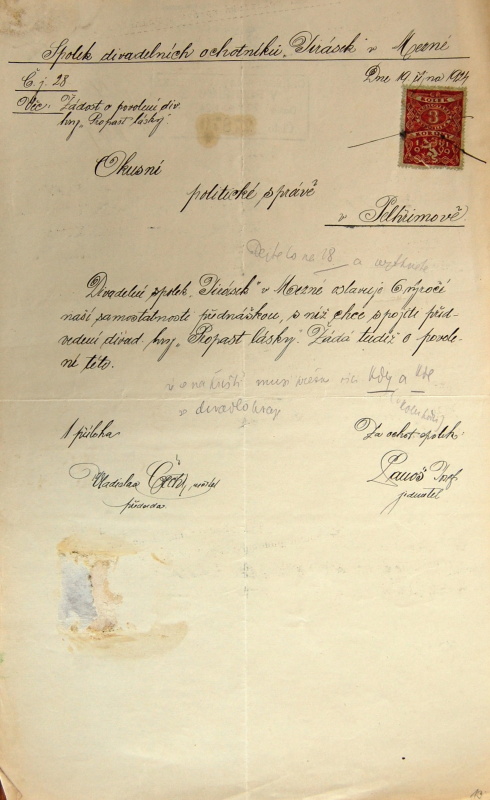 Spolek divadelních ochotníků „Jirásek" v Mezné
Č. j. 28
Dne 19. října 1924
Věc: Žádost o povolení div.
hry „Propast lásky".
KOLEK
3
KORUNY
Okresní
politické správě
v Pelhřimově
Dejte to na 18 a
Divadelní spolek „Jirásek" v Mezné oslavuje 6 výročí
naší samostatnosti přednáškou, s níž chce spojiti před-
vedení divad. hry „Propast lásky". Žádá tudíž o povole-
ní této.
kdy a kde
v divadlo hráv
1 příloha
Za ochot. spolek:
Vladislav
předseda
jednatel